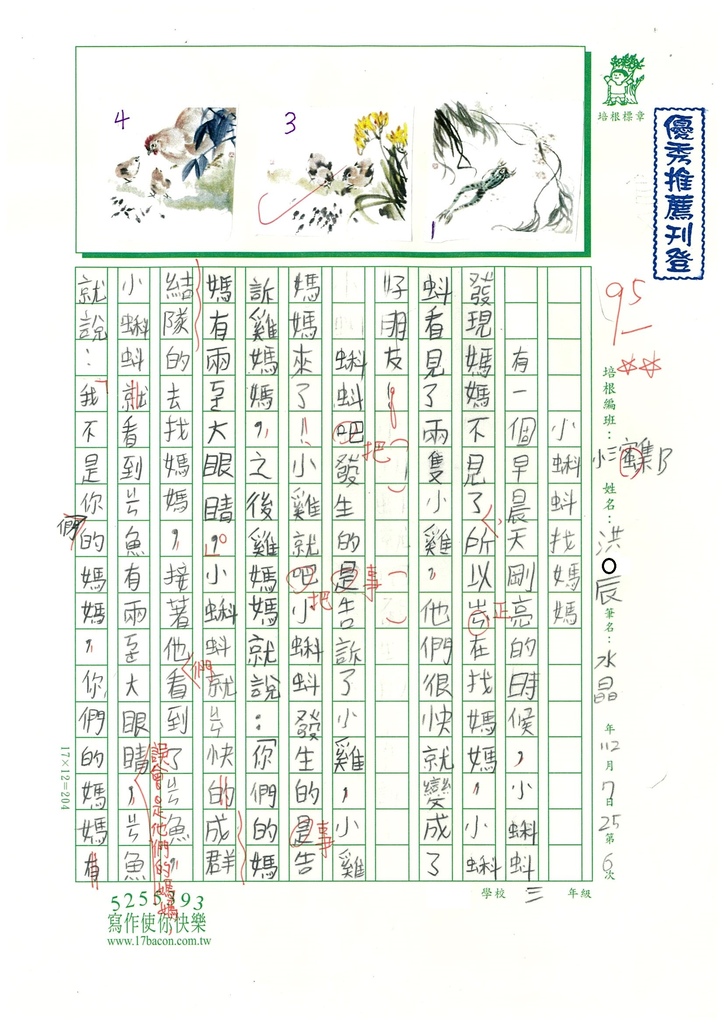 4
3
1
培根標章
優秀推薦刊登
95
培根編班：小三蜜集B
姓名：洪O辰
筆名：水晶
112年7月25日第6次
學校 三年級
小蝌蚪找媽媽
有一個早晨天剛亮的時候，小蝌蚪
發現媽媽不見了所以在找媽媽，小蝌
正
蚪看見了兩隻小雞，他們很快就變成了
好朋友！
蝌蚪吧發生的是告訴了小雞，小雞
把
事
媽媽來了！小雞就吧小蝌蚪發生的是告
把
事
訴雞媽媽，之後雞媽媽就說：「你們的媽
媽有兩大眼睛。小蝌蚪就快的成群
結隊的去找媽媽，接著他看到了魚，
們
誤會是他們的媽媽，
小蝌蚪就看到魚有兩大眼睛，魚
就說：「我不是你的媽媽，你們的媽媽有
們
17×12=204
5255393
寫作使你快樂
www.17bacon.com.tw